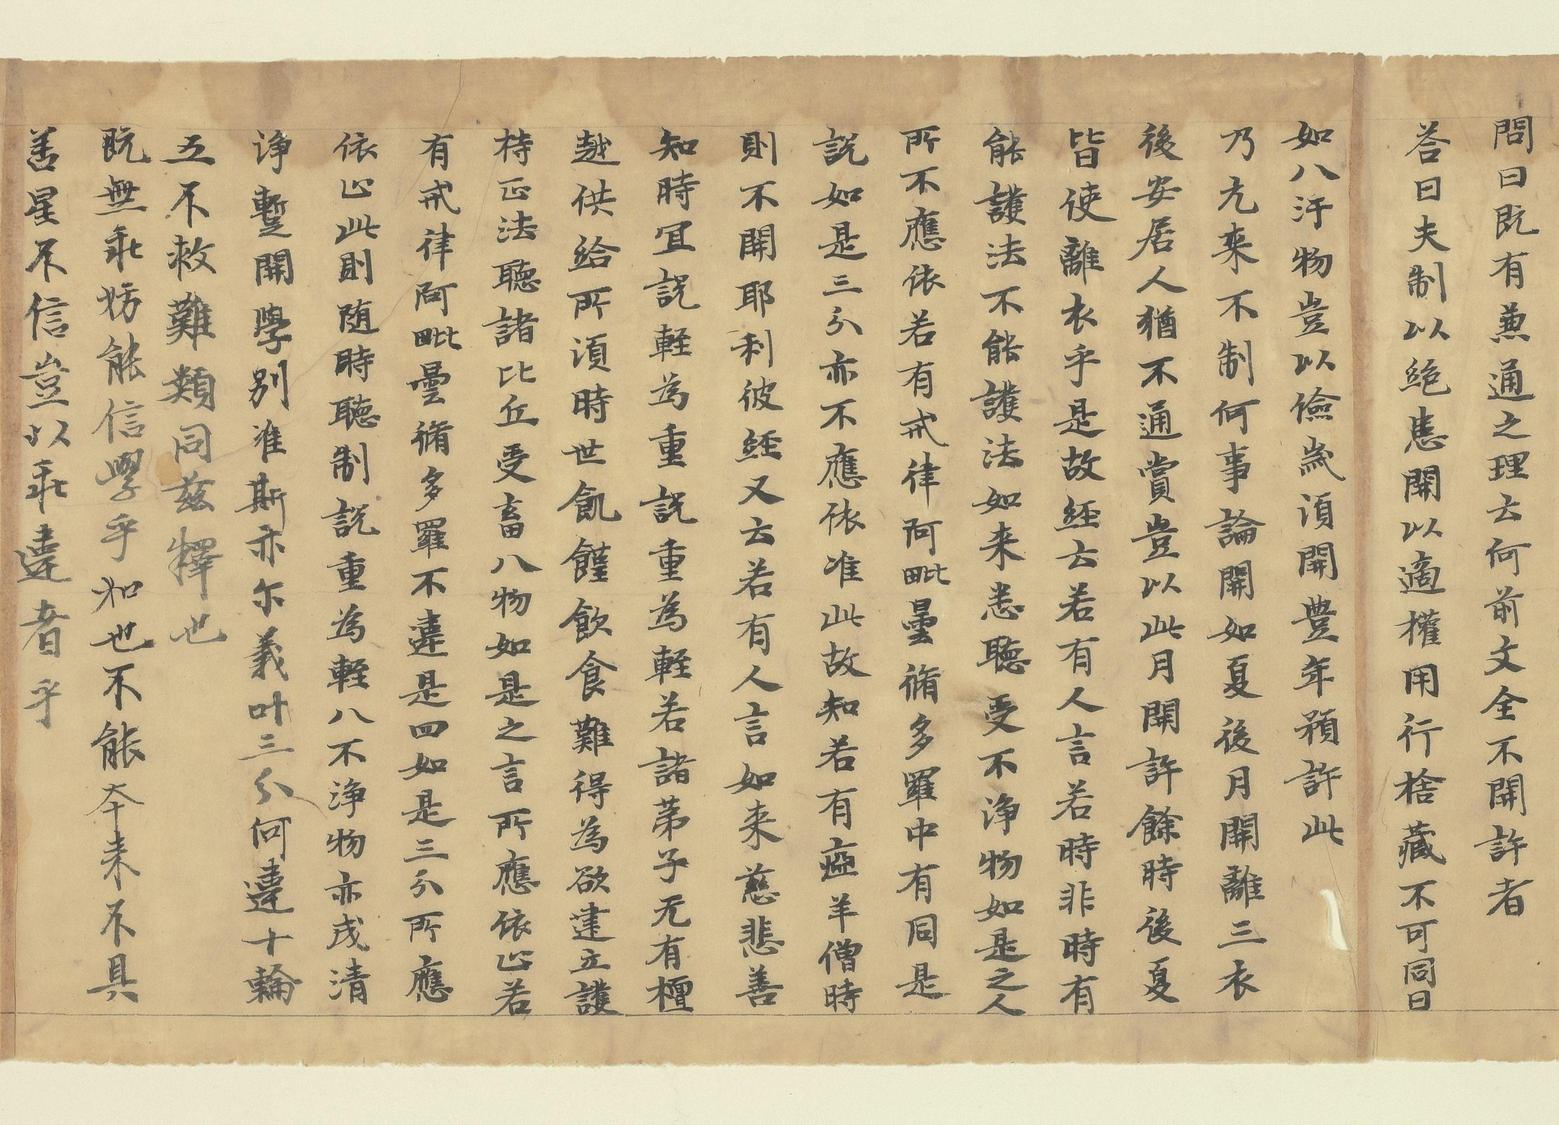 問曰既有兼通之理云何前文全不開許者
荅曰夫制以絶患開以適權用行捨藏不可同日
如八汙物豈以儉歳湏開豊年預許此
乃元来不制何事論開如夏後月開離三衣
後安居人猶不通賞豈以此月開許餘時後夏
皆使離衣乎是故經云若有人言若時非時有
能護法不能護法如来悉聽受不浄物如是之人
所不應依若有戒律阿毗曇脩多羅中有同是
説如是三分亦不應依准此故知若有瘂羊僧時
則不開耶利彼經又云若有人言如来慈悲善
知時冝説輕為重説重為輕若諸苐子无有檀
越供給所湏時世飢饉飲食難得為欲建立護
持正法聽諸比丘受畜八物如是之言所應依止若
有戒律阿毗曇脩多羅不違是四如是三分所應
依止此則随時聽制説重為輕八不浄物亦成清
浄蹔開學别准斯亦尓義叶三分何違十輪
五不救難類同兹釋也
既無乖妨能信學乎和也不能夲来不具
善星不信豈以乖違者乎